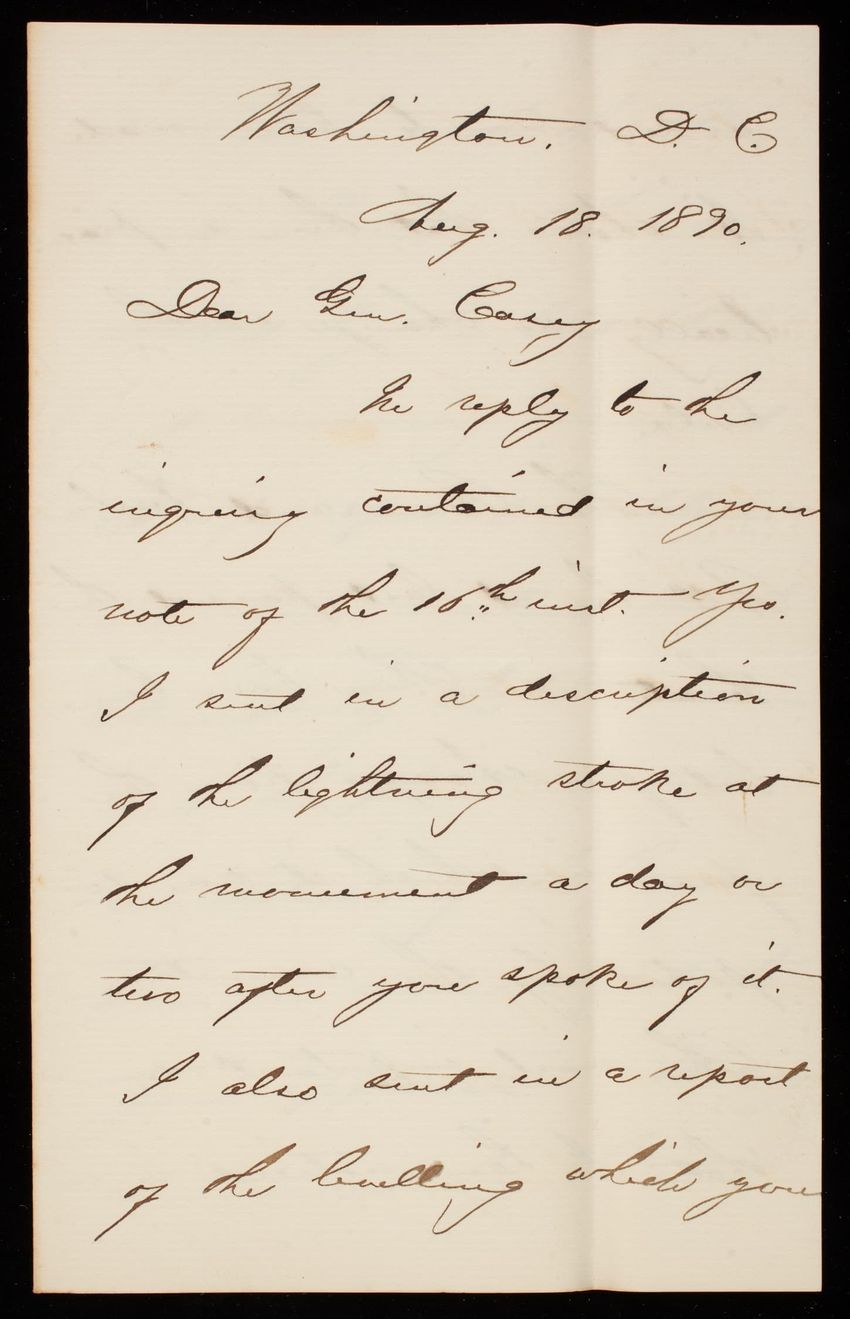 Washington. D. C.
Aug. 18. 1890.
Dear Gen. Casey
In reply to the
inquiry contained in your
note of the 16th inst. Yes.
I sent in a description
of the lightning stroke at
the monument a day or
two after you spoke of it.
I also sent in a report
of the levelling which you